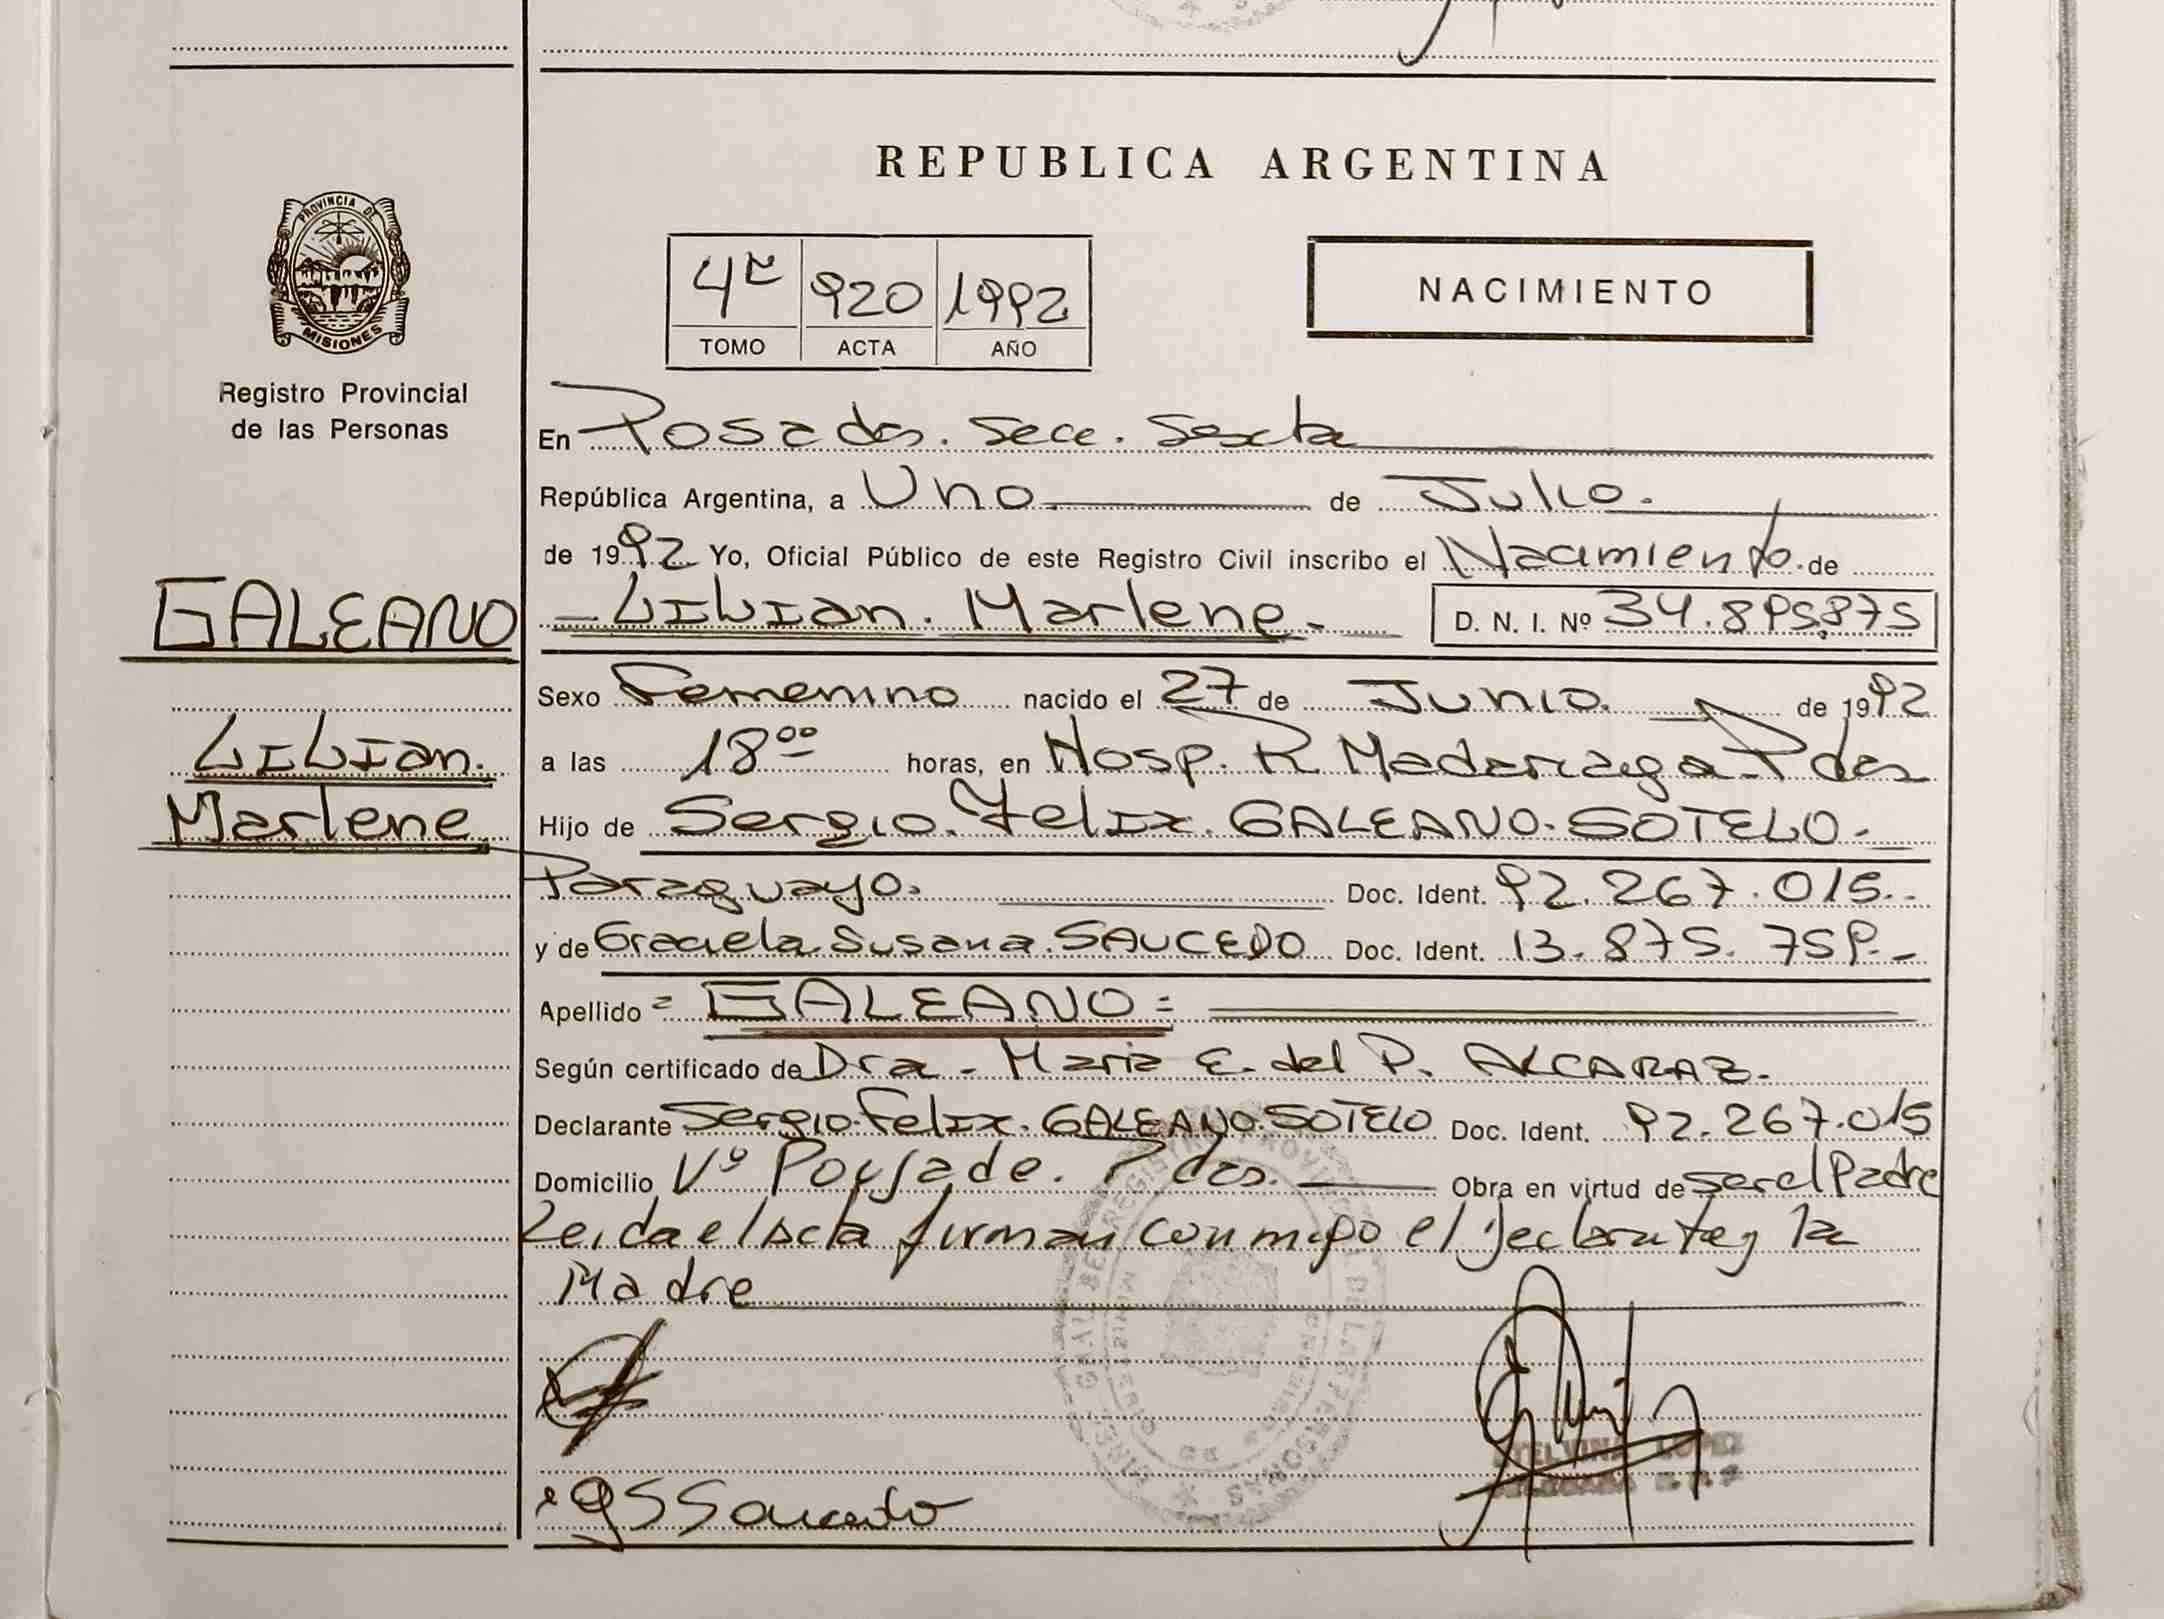 REPUBLICA ARGENTINA
PROVINCIA DE
MISIONES
Registro Provincial
de las Personas
4º 920 1992
TOMO ACTA AÑO
NACIMIENTO
En Posadas. Secc. Sexta
República Argentina, a Uno de Julio.
de 1992 Yo, Oficial Público de este Registro Civil inscribo el Nacimiento de
GALEANO
Lilian.
Marlene
- Lilian. Marlene - D. N. I. Nº 34.895.875
Sexo Femenino nacido el 27 de Junio. de 1992
a las 18⁰⁰ horas, en Hosp. R Madariaga Pdas
Hijo de Sergio. Felix. GALEANO. SOTELO.-
Paraguayo. Doc. Ident. 92.267.015.-
y de Graciela Susana. SAUCEDO Doc. Ident. 13.875.759.-
Apellido = GALEANO =
Según certificado de Dra. Maria E. del P. ALCARAZ.
Declarante Sergio Felix. GALEANO. SOTELO Doc. Ident. 92.267.015
Domicilio Vº Poujade. Pdas. Obra en virtud de ser el Padre
Leida el Acta firman conmigo el declarante y la
Madre
GSSaucedo
LOPEZ